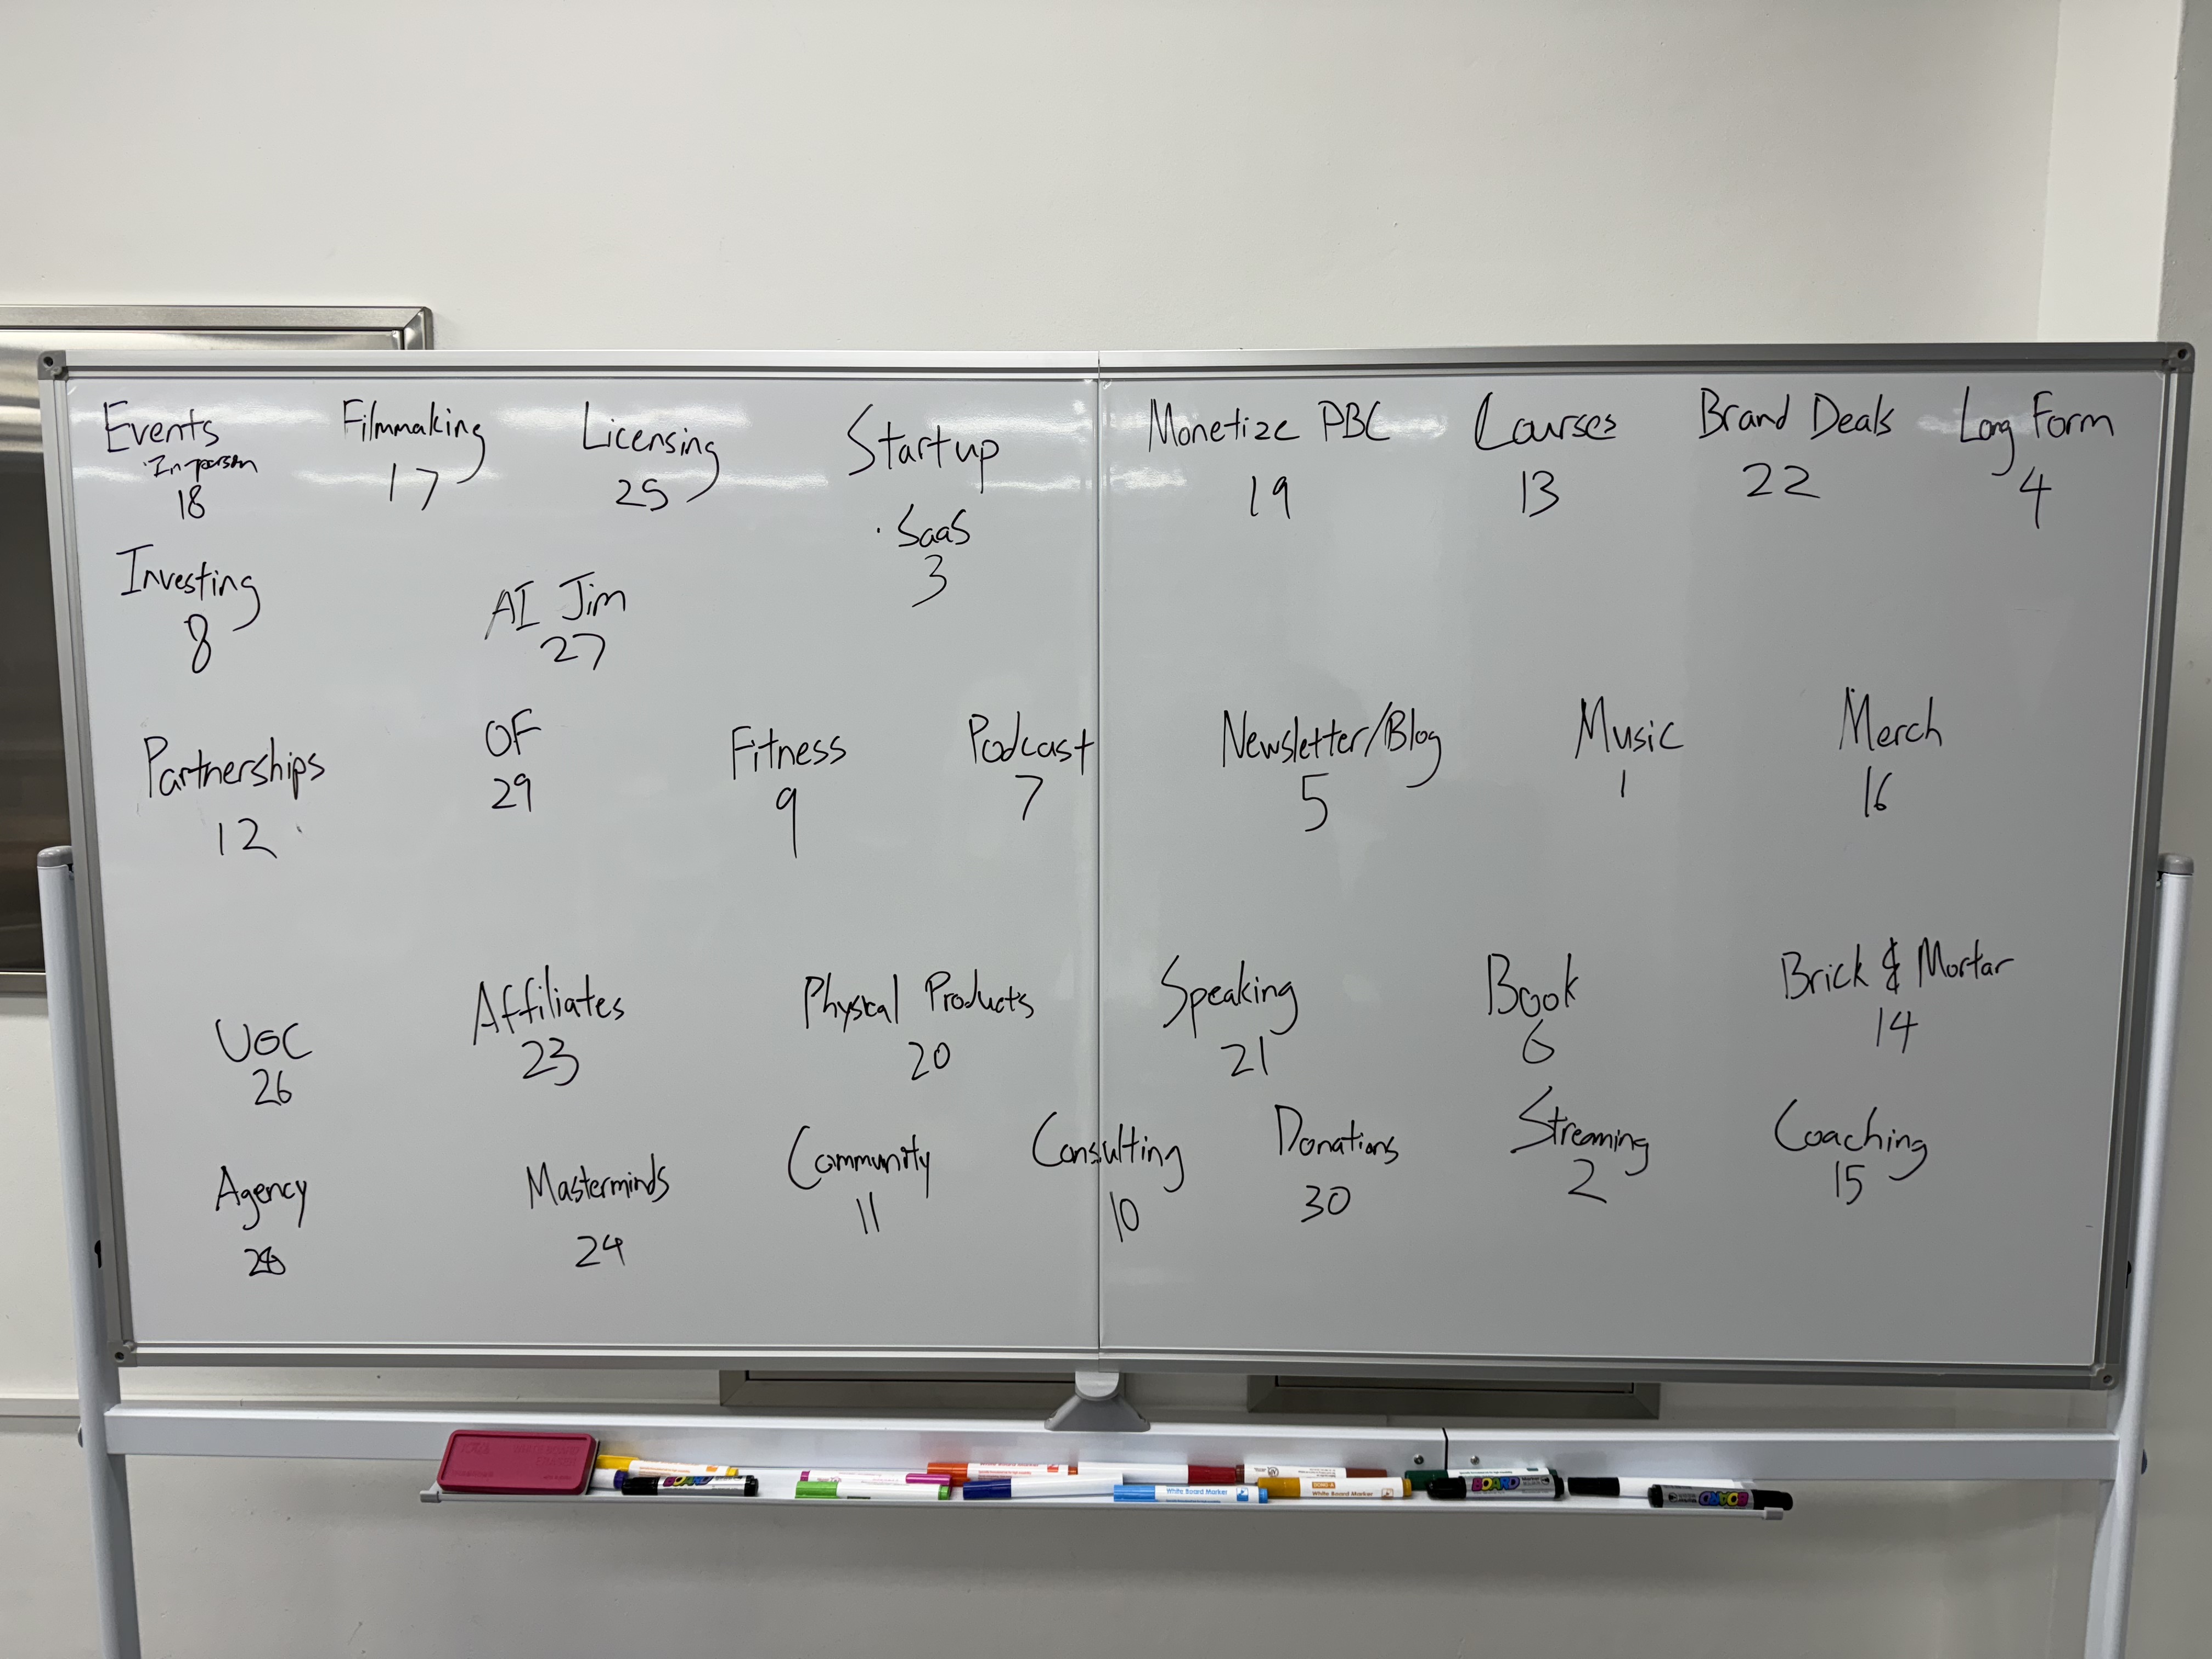 Events
·In-person
18
Filmmaking
17
Licensing
25
Startup
·SaaS
3
Monetize PBC
19
Courses
13
Brand Deals
22
Long Form
4
Investing
8
AI Jim
27
Partnerships
12
OF
29
Fitness
9
Podcast
7
Newsletter/Blog
5
Music
1
Merch
16
UGC
26
Affiliates
23
Physical Products
20
Speaking
21
Book
6
Brick & Mortar
14
Agency
28
Masterminds
24
Community
11
Consulting
10
Donations
30
Streaming
2
Coaching
15
BOARD
White Board Marker
White Board Marker
BOARD
BOARD